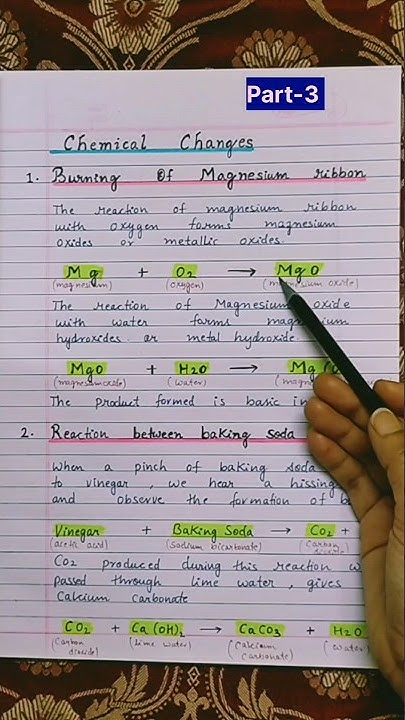 Part-3
Chemical Changes
1. Burning Of Magnesium ribbon
The reaction of magnesium ribbon
with oxygen forms magnesium
oxides or metallic oxides.
Mg + O2 → MgO
(magnesium) (oxygen) (magnesium oxide)
The reaction of Magnesium oxide
with water forms magnesium
hydroxides or metal hydroxide.
MgO + H2O → Mg
(magnesium oxide) (water)
The product formed is basic in
2. Reaction between baking soda
When a pinch of baking soda
to vinegar, we hear a hissing
and observe the formation of
Vinegar + Baking Soda → CO2 +
(acetic acid) (Sodium bicarbonate) (Carbon dioxide)
CO2 produced during this reaction
passed through lime water, gives
Calcium Carbonate
CO2 + Ca(OH)2 → CaCO3 + H2O
(Carbon dioxide) (lime water) (Calcium carbonate) (water)